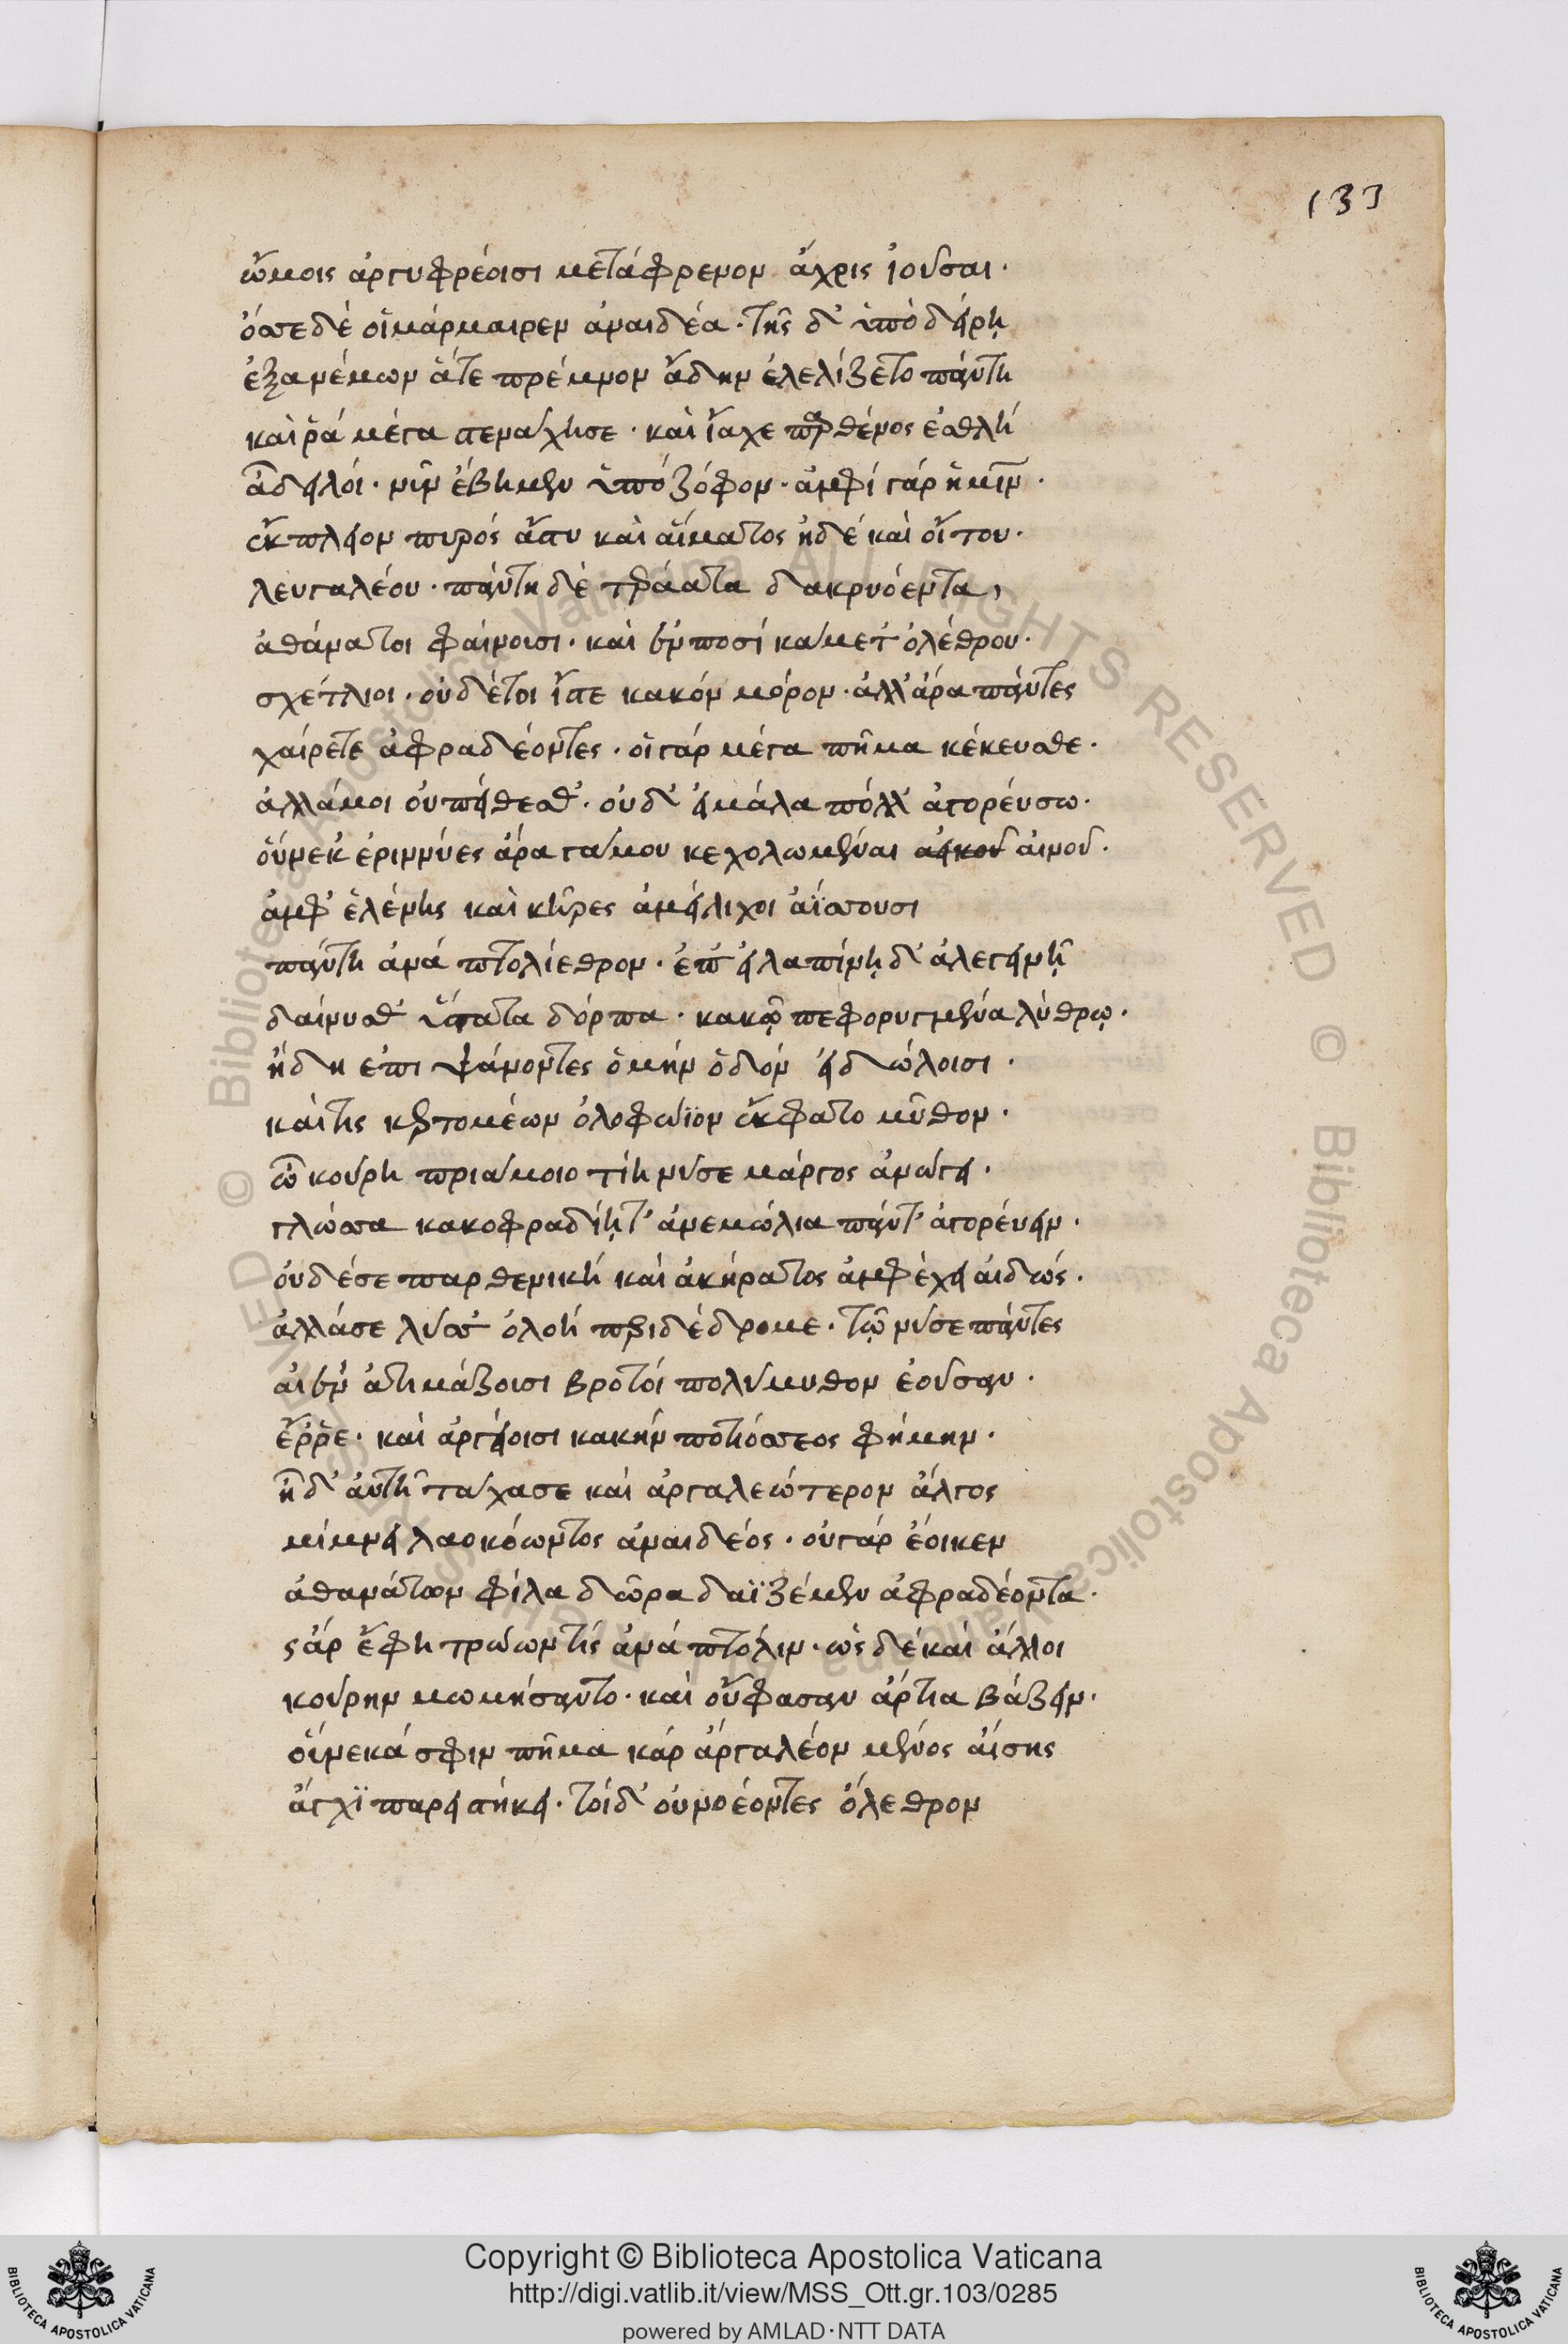 133
ὤμοις ἀργυφρέοισι μετάφρενον ἄχρις ἰοῦσαι·
ὄσσε δέ οἱ μάρμαιρεν ἀναιδέα· τῆς δ' ὑπὸ δειρὴ
ἐξ ἀνέμων ἅτε πρέμνον ἄδην ἐλελίζετο πάντη
καὶ ῥά μέγα στενάχησε· καὶ ἴαχε παρθένος ἐσθλή
ἆ δειλοί· νῦν ἔβημεν ὑπό ζόφον· ἀμφί γάρ ἡμῖν·
ἔκπλειον πυρός ἄστυ καὶ αἵματος ἠδέ καὶ οἴτου·
λευγαλέου· πάντη δὲ τέραατα δακρυόεντα,
ἀθάνατοι φαίνοισι· καὶ ἐν ποσί κάμετ' ὀλέθρου·
σχέτλιοι· οὐδ' ἔτοι ἴστε κακόν μόρον· ἀλλ' ἄρα πάντες
χαίρετε ἀφραδέοντες· οἱ γάρ μέγα πῆμα κέκευσθε·
ἀλλά μοι οὐ πείθεσθ'· οὐδ' εἰ μάλα πόλλ' ἀγορεύσω·
οὕνεκ' ἐριννύες ἄρα γάμου κεχολωμέναι αἰνοῦ·
ἀμφ' ἑλένης καὶ κῆρες ἀμείλιχοι ἀΐσσουσι
πάντη ἀνά πτολίεθρον· ἐπ' εἰλαπίνῃ δ' ἀλεγεινῇ
δαίνυσθ' ὕστατα δόρπα· κακῷ πεφορυγμένα λύθρῳ·
ἤδη ἐπι ψάνοντες ὁμήν ὁδόν εἰδώλοισι·
καί τις κερτομέων ὀλοφώϊον ἔκφατο μῦθον·
ὦ κούρη πριάμοιο τίη νύ σε μάργος ἀνώγει·
γλῶσσα κακοφραδίῃ τ' ἀνεμώλια πάντ' ἀγορεύειν·
οὐδέ σε παρθενική καὶ ἀκήρατος ἀμφέχει αἰδώς·
ἀλλά σε λύσσ' ὀλοή περιδέδρομε· τῷ νύ σε πάντες
αἰὲν ἀτιμάζοισι βροτοί πολύμυθον ἐοῦσαν·
ἔρρε· καὶ ἀργείοισι κακήν ποτιόσσεος φήμην·
ἠδ' αὐτῇ τάχα σε καὶ ἀργαλεώτερον ἄλγος
μίμνει λαοκόωντος ἀναιδέος· οὐ γάρ ἔοικεν
ἀθανάτων φίλα δῶρα δαϊζέμεν ἀφραδέοντα·
ς ἄρ ἔφη τρώων τίς ἀνά πτόλιν· ὡς δέ καὶ ἄλλοι
κούρην μωμήσαντο· καὶ οὔ φασαν ἄρτια βάζειν·
οὕνεκά σφιν πῆμα κάρ ἀργαλέον μένος αἴσης
ἄγχϊ παρειστήκει· τοί δ' οὐ νοέοντες ὄλεθρον
Copyright © Biblioteca Apostolica Vaticana
http://digi.vatlib.it/view/MSS_Ott.gr.103/0285
powered by AMLAD·NTT DATA